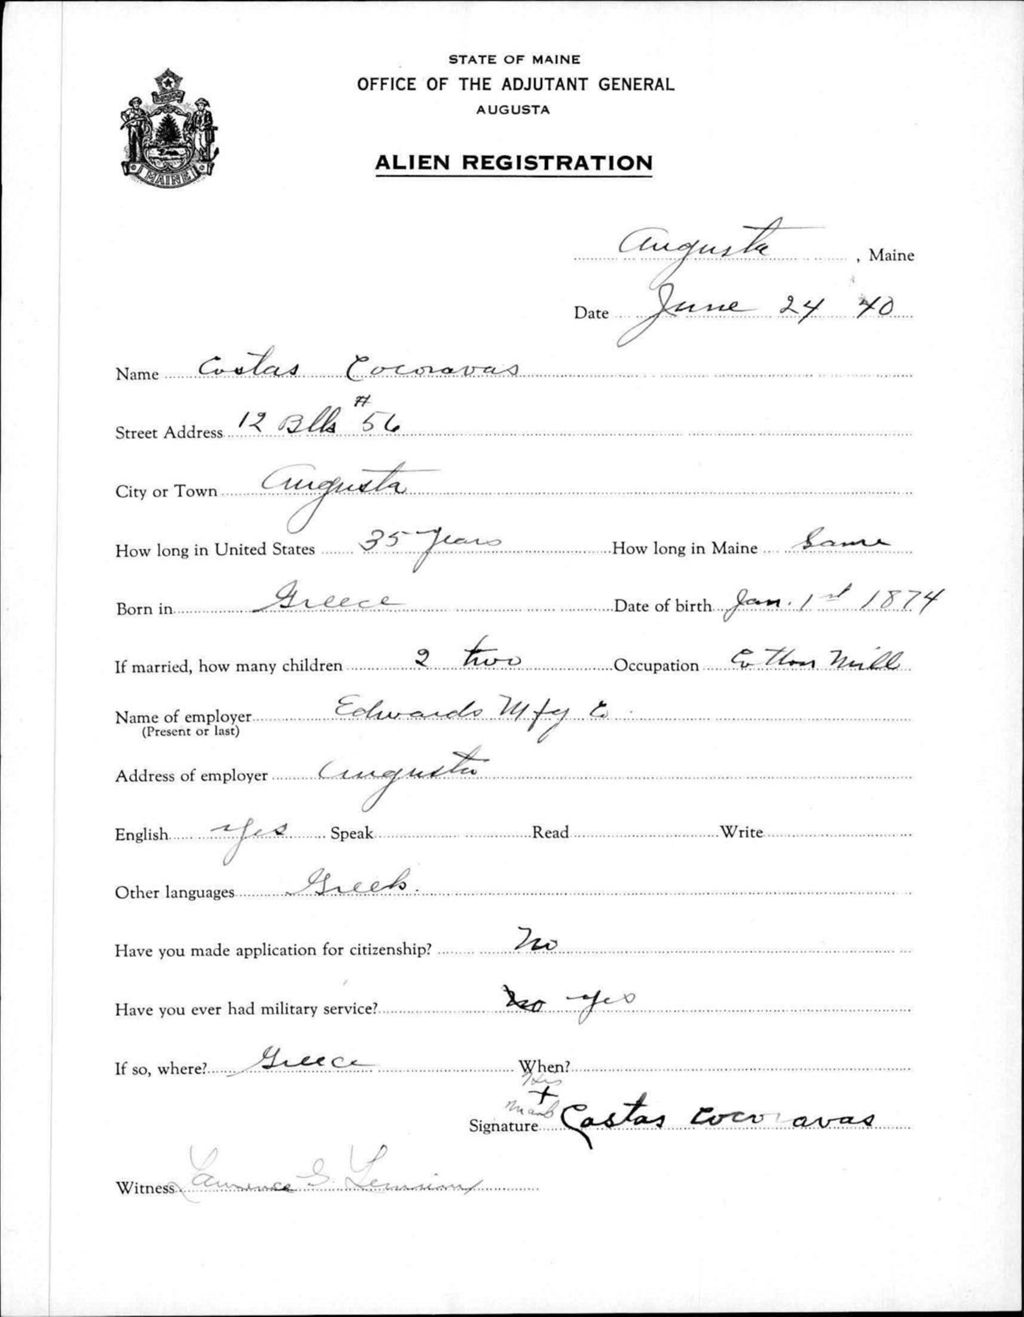 STATE OF MAINE
OFFICE OF THE ADJUTANT GENERAL
AUGUSTA
ALIEN REGISTRATION
MAINE
Augusta, Maine
Date June 24 40
Name Costas Cocoravas
Street Address 12 Blk #56
City or Town Augusta
How long in United States 35 Years How long in Maine Same
Born in Greece Date of birth Jan. 1st 1874
If married, how many children 2 two Occupation Cotton Mill
Name of employer Edwards Mfg Co.
(Present or last)
Address of employer Augusta
English Yes Speak Read Write
Other languages Greek.
Have you made application for citizenship? No
Have you ever had military service? No Yes
If so, where? Greece When?
His
+
Mark
Signature Costas Cocoravas
Witness Lawrence G.